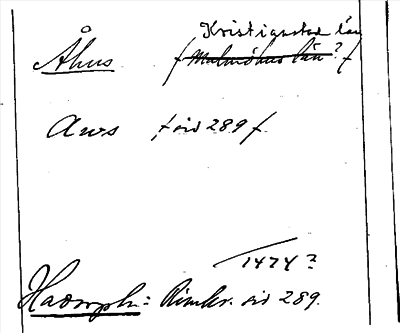 Kristianstad län
Åhus / Malmöhus län? /
Aws / sid 289 /.
1474?
Hadorph: Rimkr. sid 289.